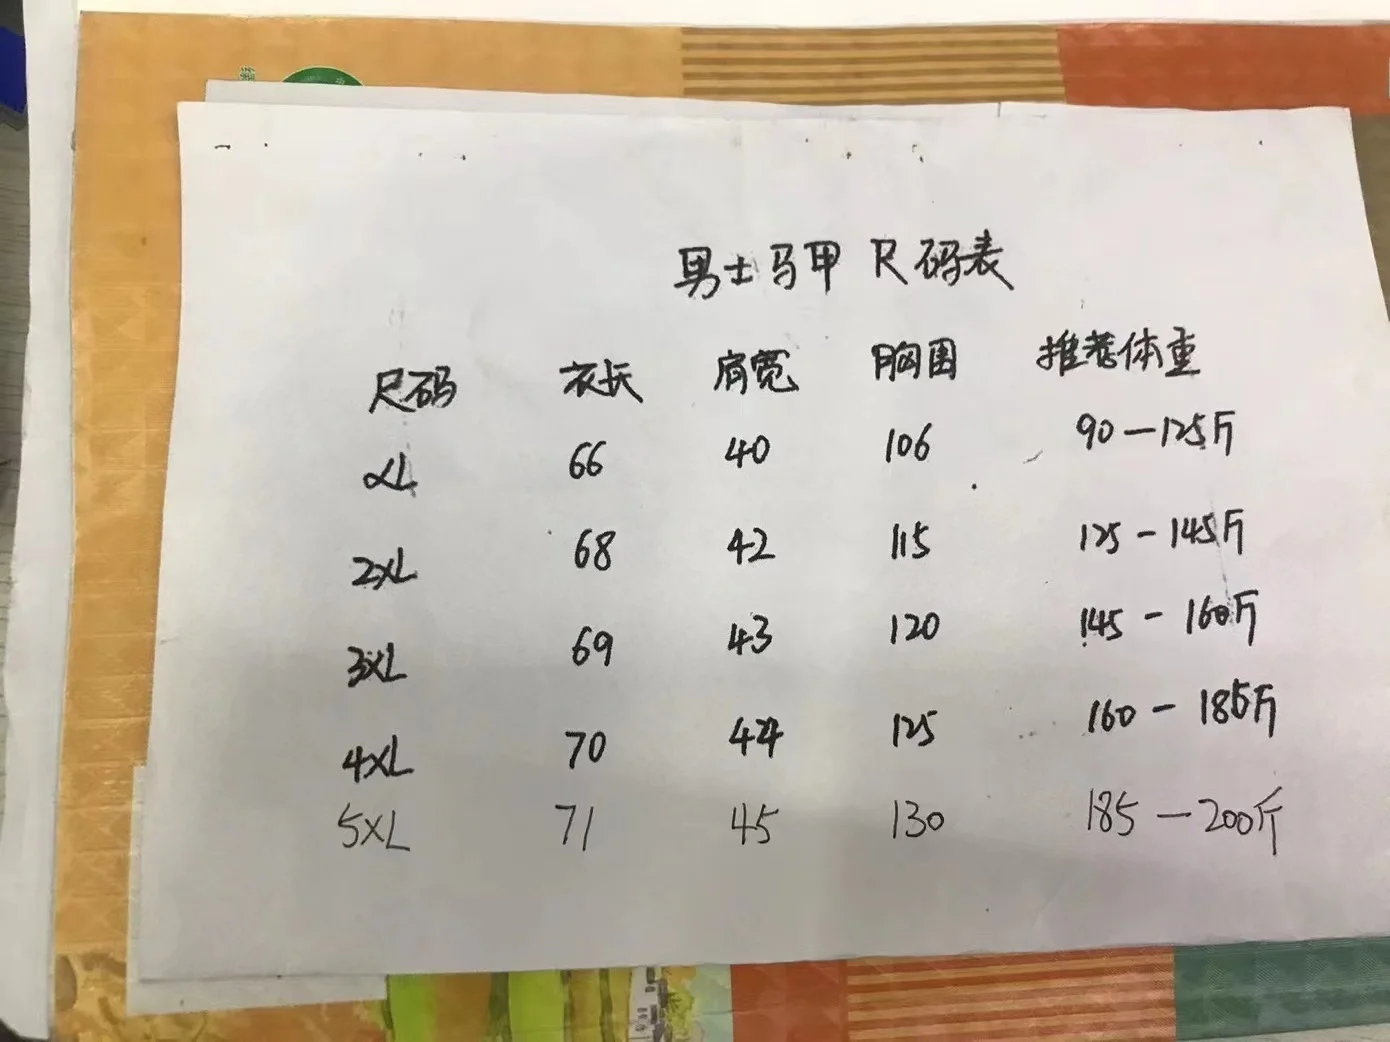 男士马甲 尺码表
尺码 衣长 肩宽 胸围 推荐体重
XL 66 40 106 90-125斤
2XL 68 42 115 125-145斤
3XL 69 43 120 145-160斤
4XL 70 44 125 160-185斤
5XL 71 45 130 185-200斤